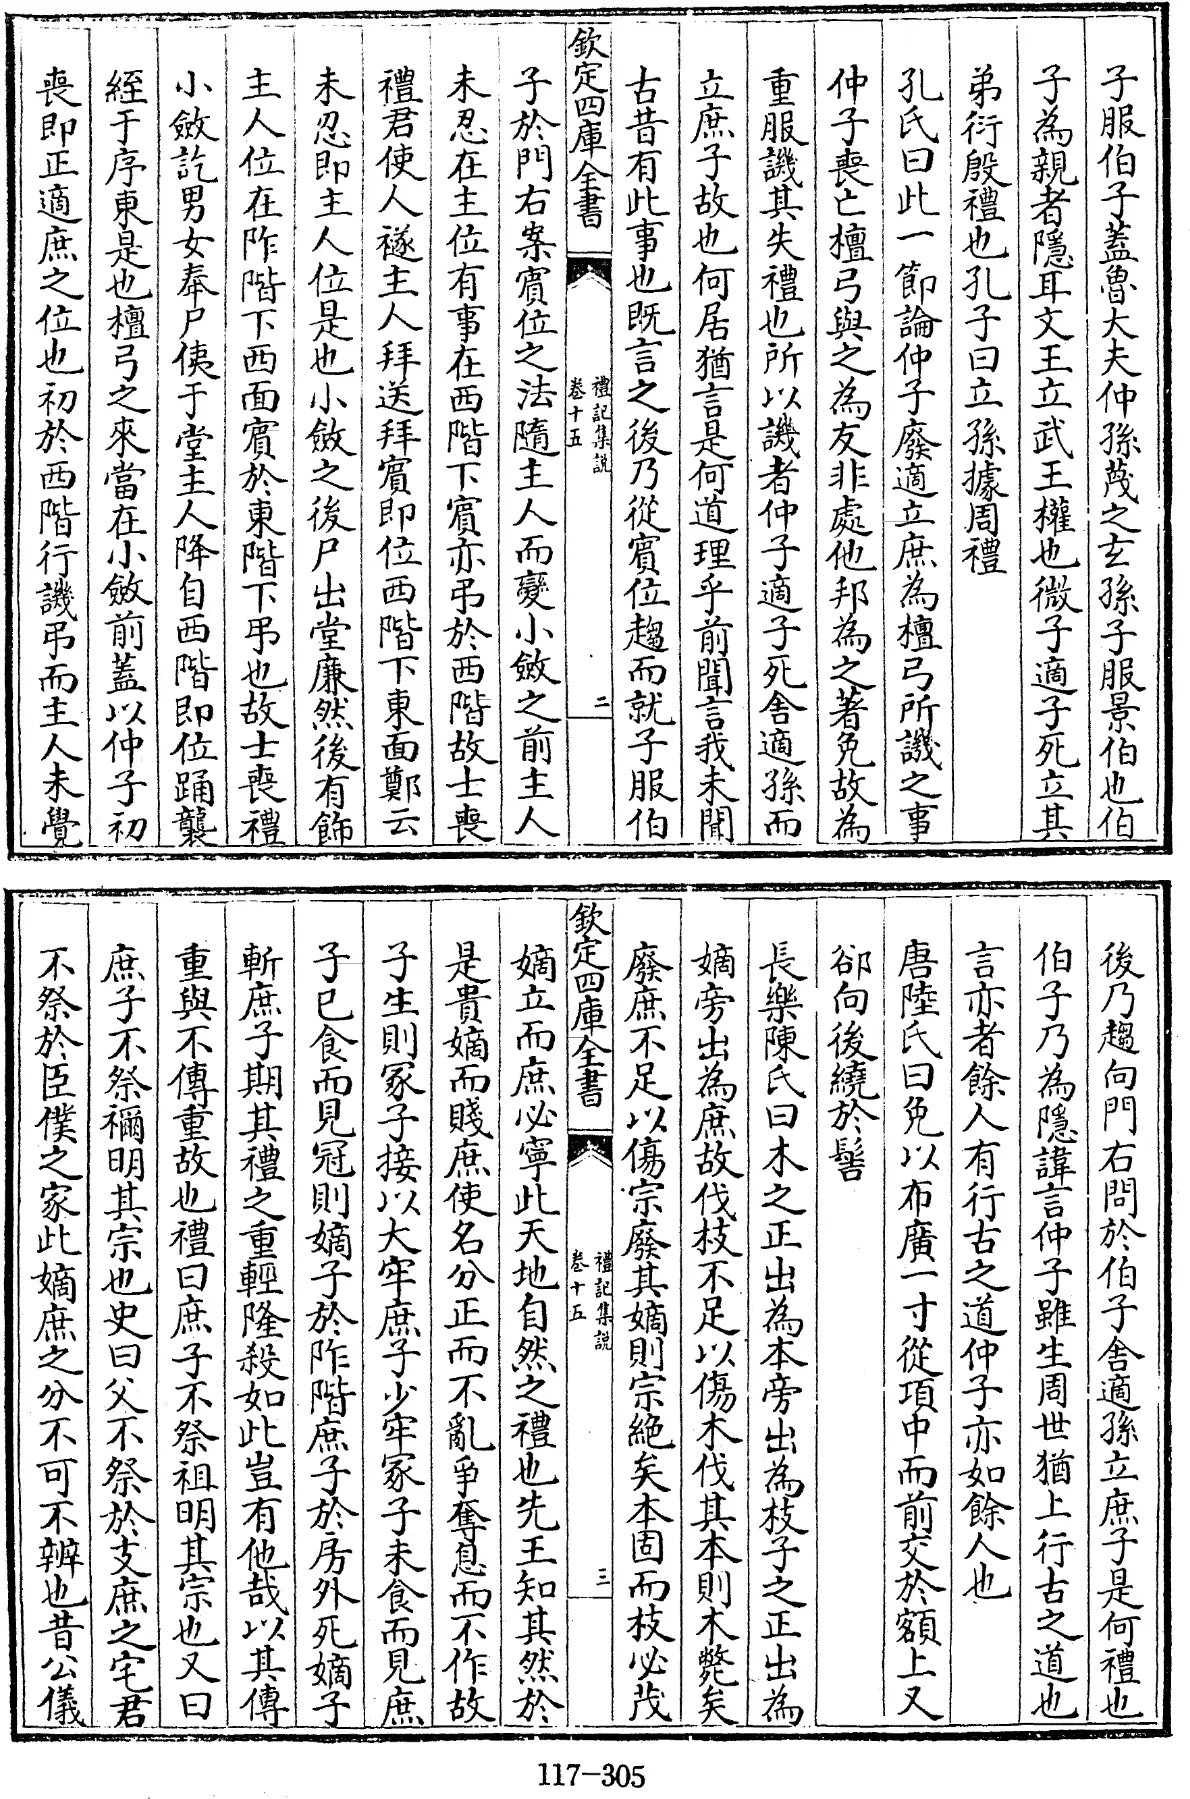 子服伯子蓋魯大夫仲孫蔑之玄孫子服景伯也伯
子為親者隱耳文王立武王權也微子適子死立其
弟衍殷禮也孔子曰立孫據周禮
孔氏曰此一節論仲子廢適立庶為檀弓所譏之事
仲子喪亡檀弓與之為友非處他邦為之著免故為
重服譏其失禮也所以譏者仲子適子死舍適孫而
立庶子故也何居猶言是何道理乎前聞言我未聞
古昔有此事也既言之後乃從賓位趨而就子服伯
欽定四庫全書
禮記集說
卷十五
二
子於門右案賓位之法隨主人而變小斂之前主人
未忍在主位有事在西階下賓亦弔於西階故士喪
禮君使人襚主人拜送拜賓即位西階下東面鄭云
未忍即主人位是也小斂之後尸出堂廉然後有飾
主人位在阼階下西面賓於東階下弔也故士喪禮
小斂訖男女奉尸侇于堂主人降自西階即位踊襲
絰于序東是也檀弓之來當在小斂前蓋以仲子初
喪即正適庶之位也初於西階行譏弔而主人未覺
後乃趨向門右問於伯子舍適孫立庶子是何禮也
伯子乃為隱諱言仲子雖生周世猶上行古之道也
言亦者餘人有行古之道仲子亦如餘人也
唐陸氏曰免以布廣一寸從項中而前交於額上又
郤向後繞於髻
長樂陳氏曰木之正出為本旁出為枝子之正出為
嫡旁出為庶故伐枝不足以傷木伐其本則木斃矣
廢庶不足以傷宗廢其嫡則宗絶矣本固而枝必茂
欽定四庫全書
禮記集說
卷十五
三
嫡立而庶必寧此天地自然之禮也先王知其然於
是貴嫡而賤庶使名分正而不亂爭奪息而不作故
子生則冢子接以大牢庶子少牢冢子未食而見庶
子已食而見冠則嫡子於阼階庶子於房外死嫡子
斬庶子期其禮之重輕隆殺如此豈有他哉以其傳
重與不傳重故也禮曰庶子不祭祖明其宗也又曰
庶子不祭禰明其宗也史曰父不祭於支庶之宅君
不祭於臣僕之家此嫡庶之分不可不辨也昔公儀
117-305